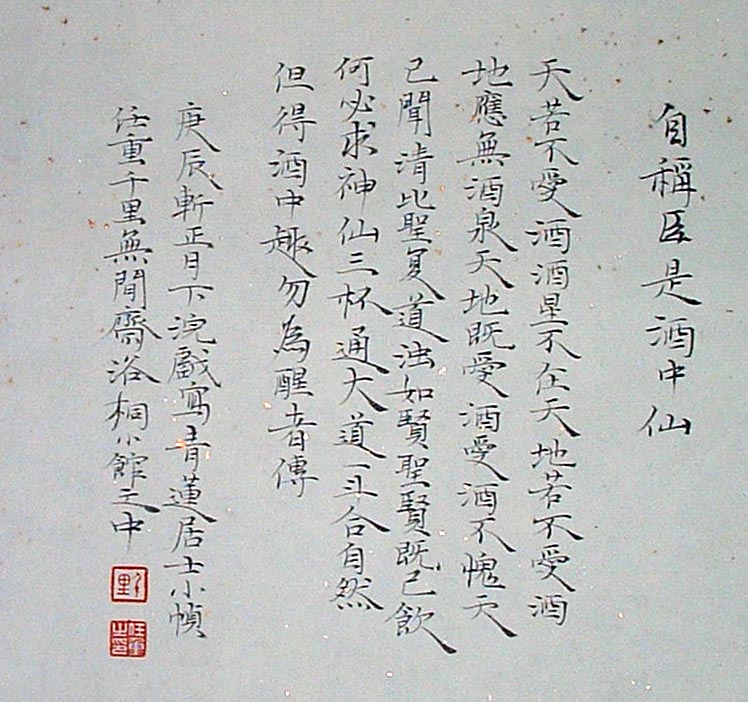 自稱臣是酒中仙
天若不愛酒酒星不在天地若不愛酒
地應無酒泉天地既愛酒愛酒不愧天
已聞清比聖復道濁如賢聖賢既已飲
何必求神仙三杯通大道一斗合自然
但得酒中趣勿為醒者傳
庚辰斬正月下浣戲寫青蓮居士小幀
任重千里無聞齋浴桐小館之中
任重之印